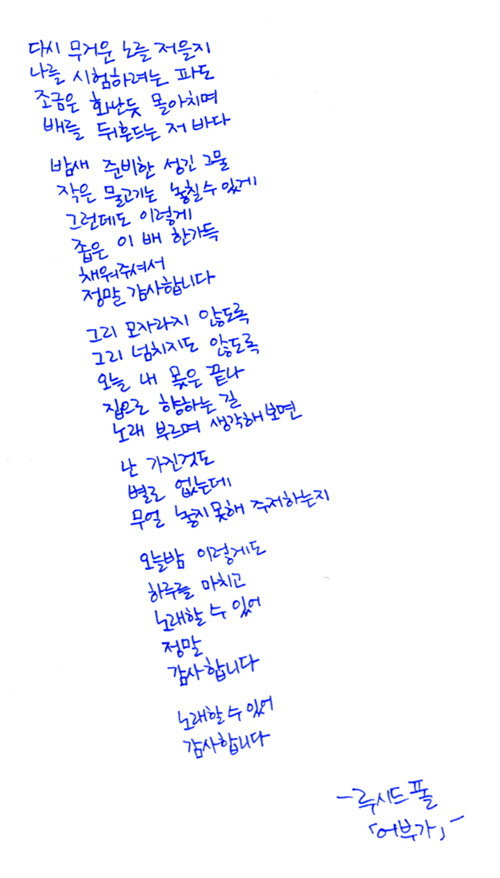 다시 무거운 노를 저을지
나를 시험하려는 파도
조금은 화난듯 몰아치며
배를 뒤흔드는 저 바다
밤새 준비한 성긴 그물
작은 물고기는 놓칠 수 있게
그런데도 이렇게
좁은 이 배 한가득
채워주셔서
정말 감사합니다
그리 모자라지 않도록
그리 넘치지도 않도록
오늘 내 몫은 끝나
집으로 향하는 길
노래 부르며 생각해보면
난 가진것도
별로 없는데
무얼 놓지 못해 주저하는지
오늘밤 이렇게도
하루를 마치고
노래할 수 있어
정말
감사합니다
노래할 수 있어
감사합니다
-루시드 폴
「어부가」-